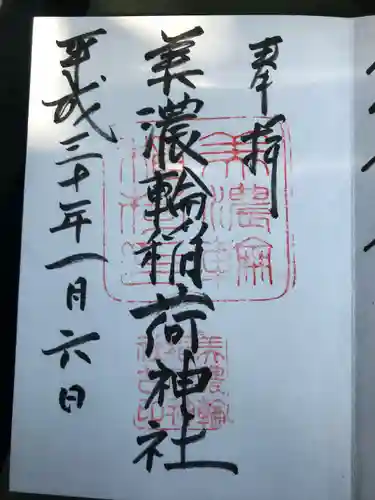 奉拝
美濃輪稲荷神社
平成三十年一月六日